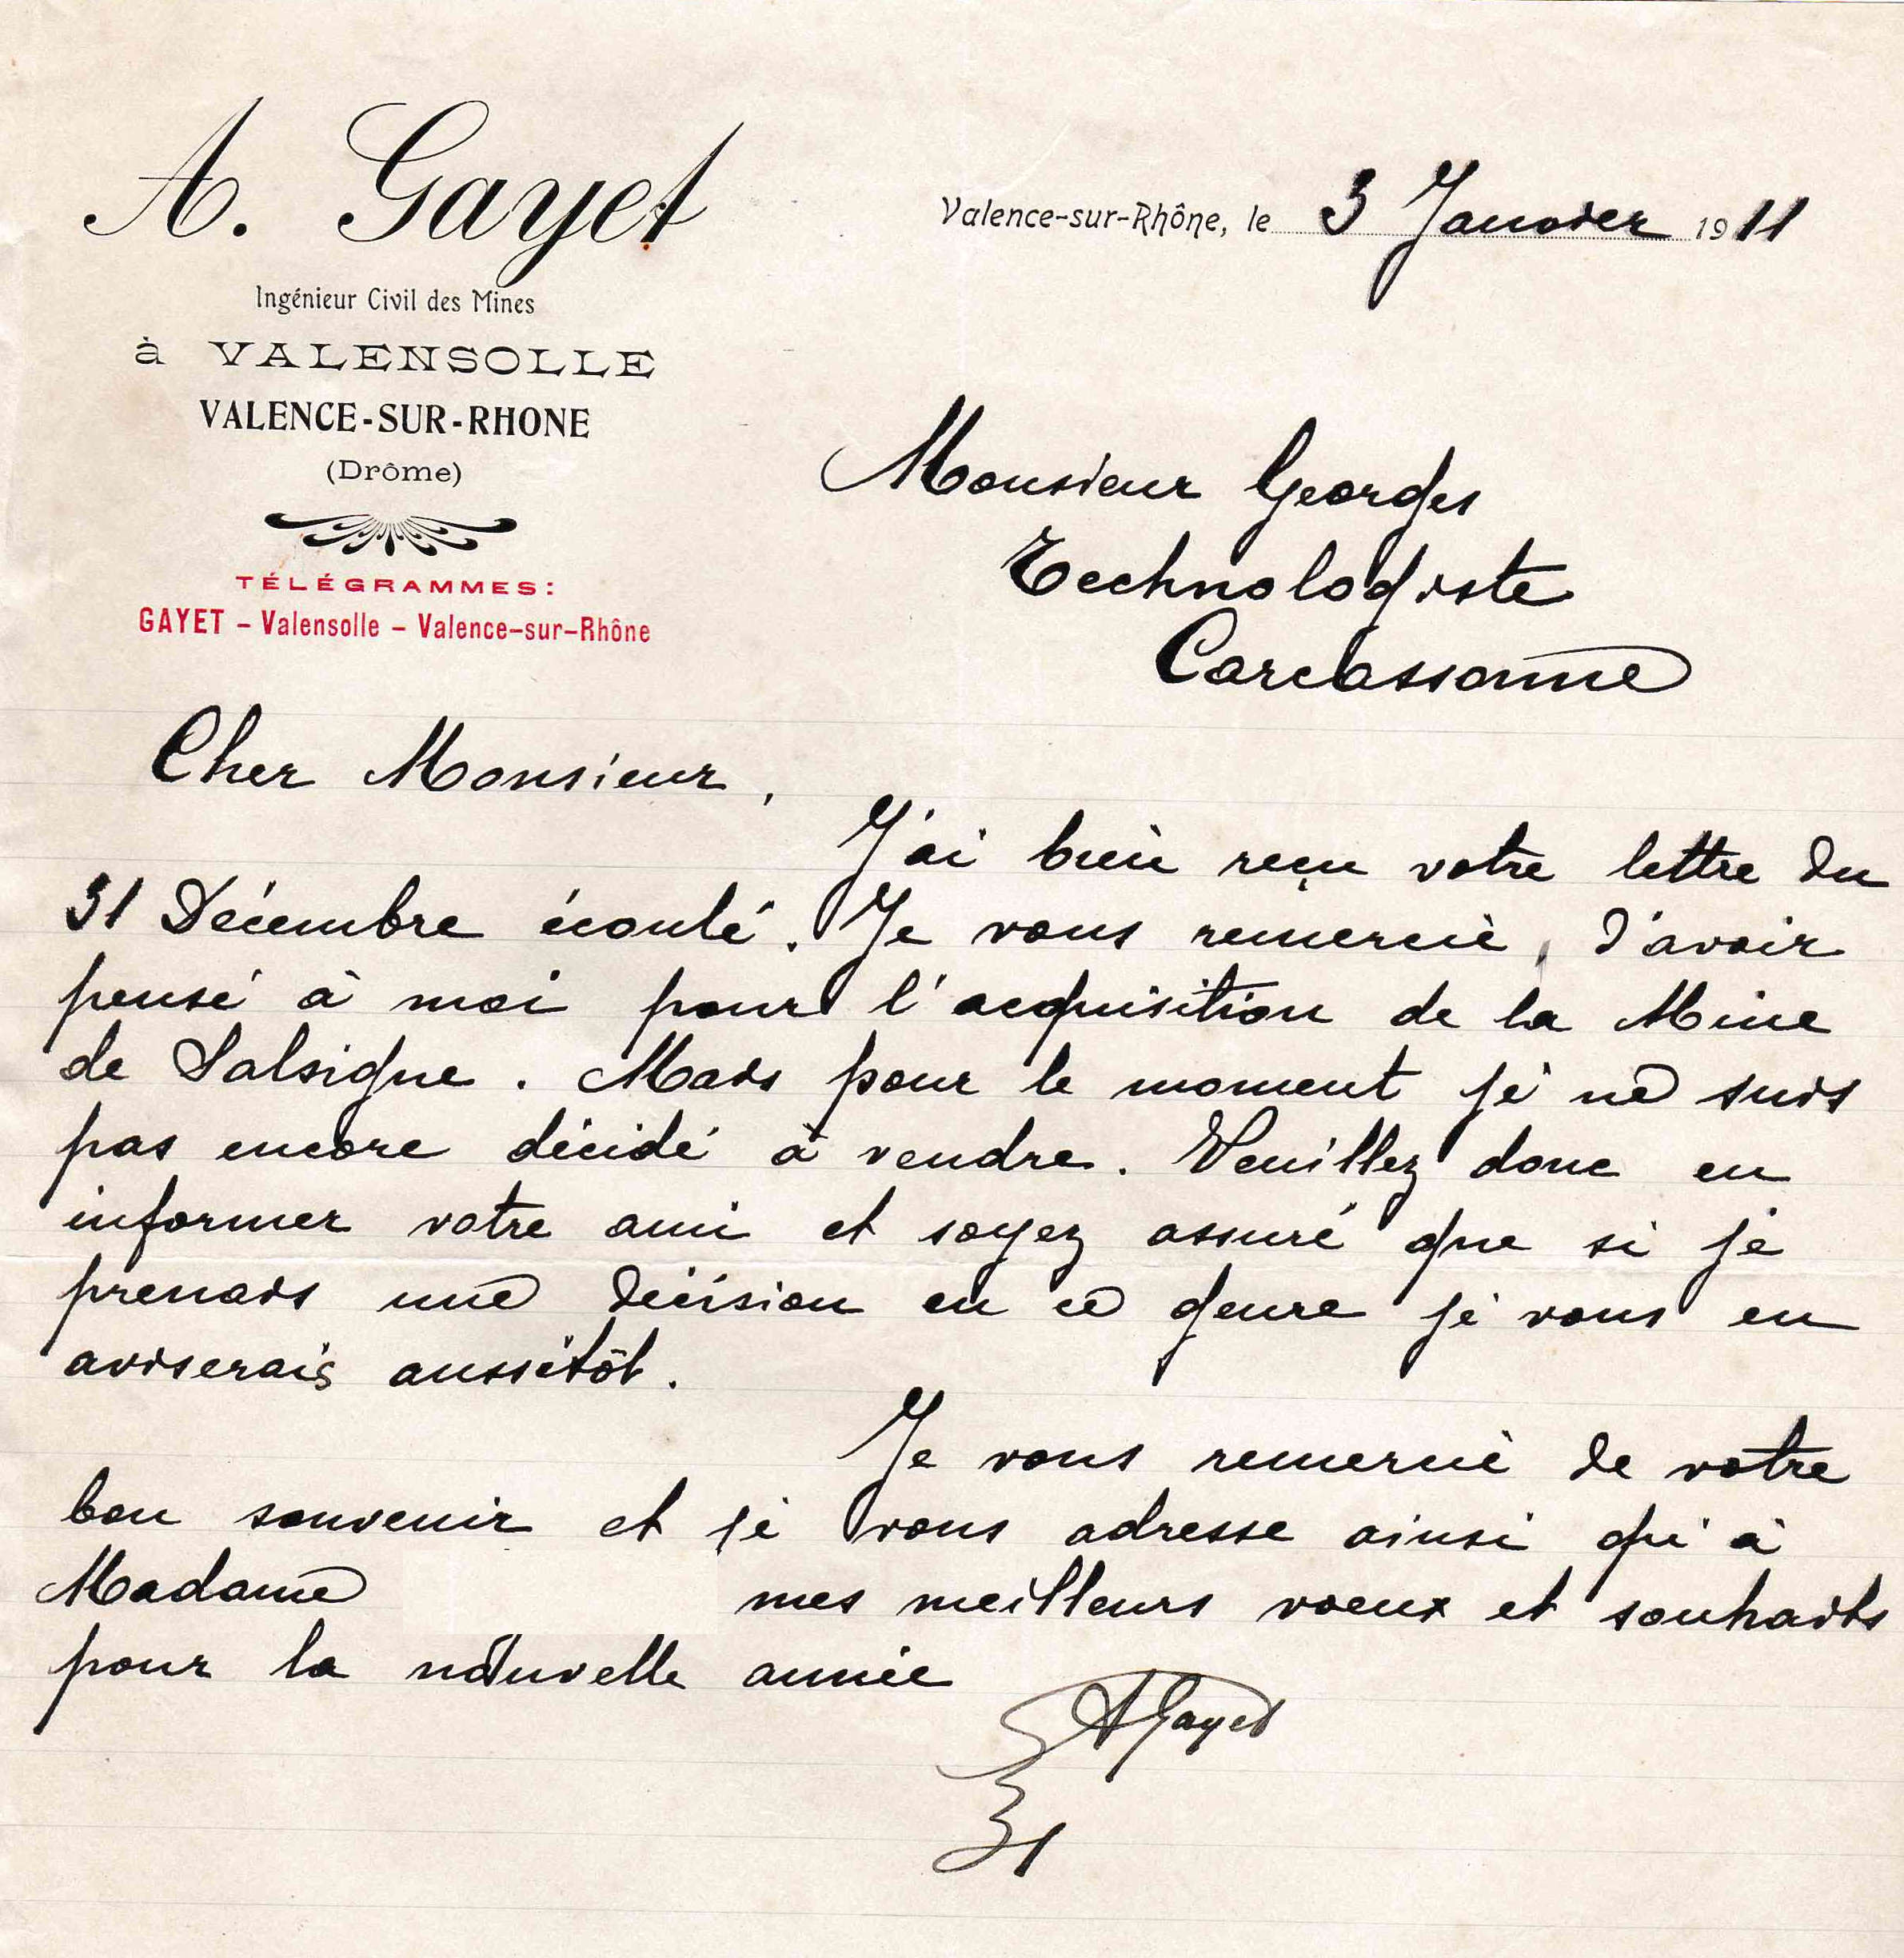 A. Gayet
Ingénieur Civil des Mines
à VALENSOLLE
VALENCE-SUR-RHONE
(Drôme)
TÉLÉGRAMMES:
GAYET - Valensolle - Valence-sur-Rhône
Valence-sur-Rhône, le 3 Janvier 1911
Monsieur Georges
Technologiste
Carcassonne
Cher Monsieur,
J'ai bien reçu votre lettre du
31 Décembre écoulé. Je vous remercie, d'avoir
pensé à moi pour l'acquisition de la Mine
de Salsigne. Mais pour le moment je ne suis
pas encore décidé à vendre. Veuillez donc en
informer votre ami et soyez assuré que si je
prenais une décision en ce genre je vous en
aviserais aussitôt.
Je vous remercie de votre
bon souvenir et je vous adresse ainsi qu'à
Madame mes meilleurs voeux et souhaits
pour la nouvelle année
AGayet